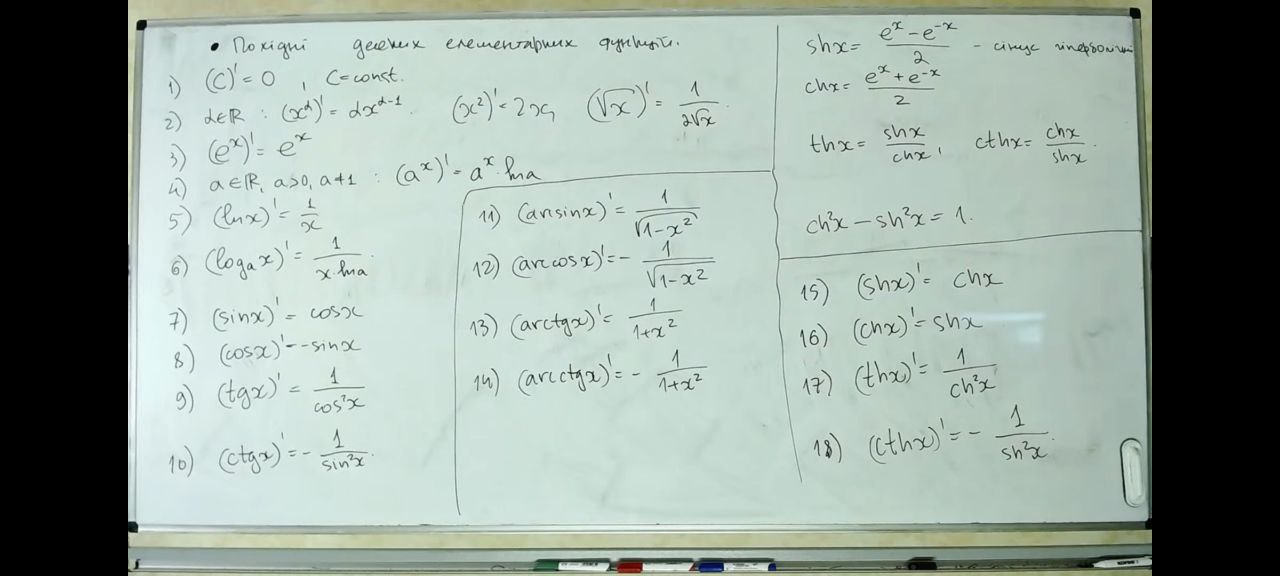 • Похідні деяких елементарних функцій.
1) (C)' = 0, C=const.
2) α∈ℝ : (x^α)' = αx^(α-1). (x²)' = 2x, (√x)' = 1/(2√x).
3) (e^x)' = e^x
4) a∈ℝ, a>0, a≠1 : (a^x)' = a^x · ln a
5) (ln x)' = 1/x
6) (log_a x)' = 1/(x·ln a).
7) (sin x)' = cos x
8) (cos x)' = -sin x
9) (tg x)' = 1/cos²x
10) (ctg x)' = - 1/sin²x.
11) (arcsin x)' = 1/√(1-x²)
12) (arccos x)' = - 1/√(1-x²)
13) (arctg x)' = 1/(1+x²)
14) (arcctg x)' = - 1/(1+x²)
sh x = (e^x - e^(-x))/2 - сінус гіперболічний
ch x = (e^x + e^(-x))/2
th x = sh x/ch x, cth x = ch x/sh x.
ch²x - sh²x = 1.
15) (sh x)' = ch x
16) (ch x)' = sh x
17) (th x)' = 1/ch²x
18) (cth x)' = - 1/sh²x.